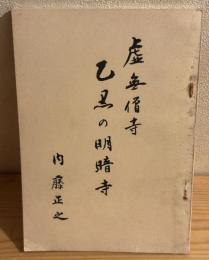 虚無僧寺
乙黒の明暗寺
内藤正之